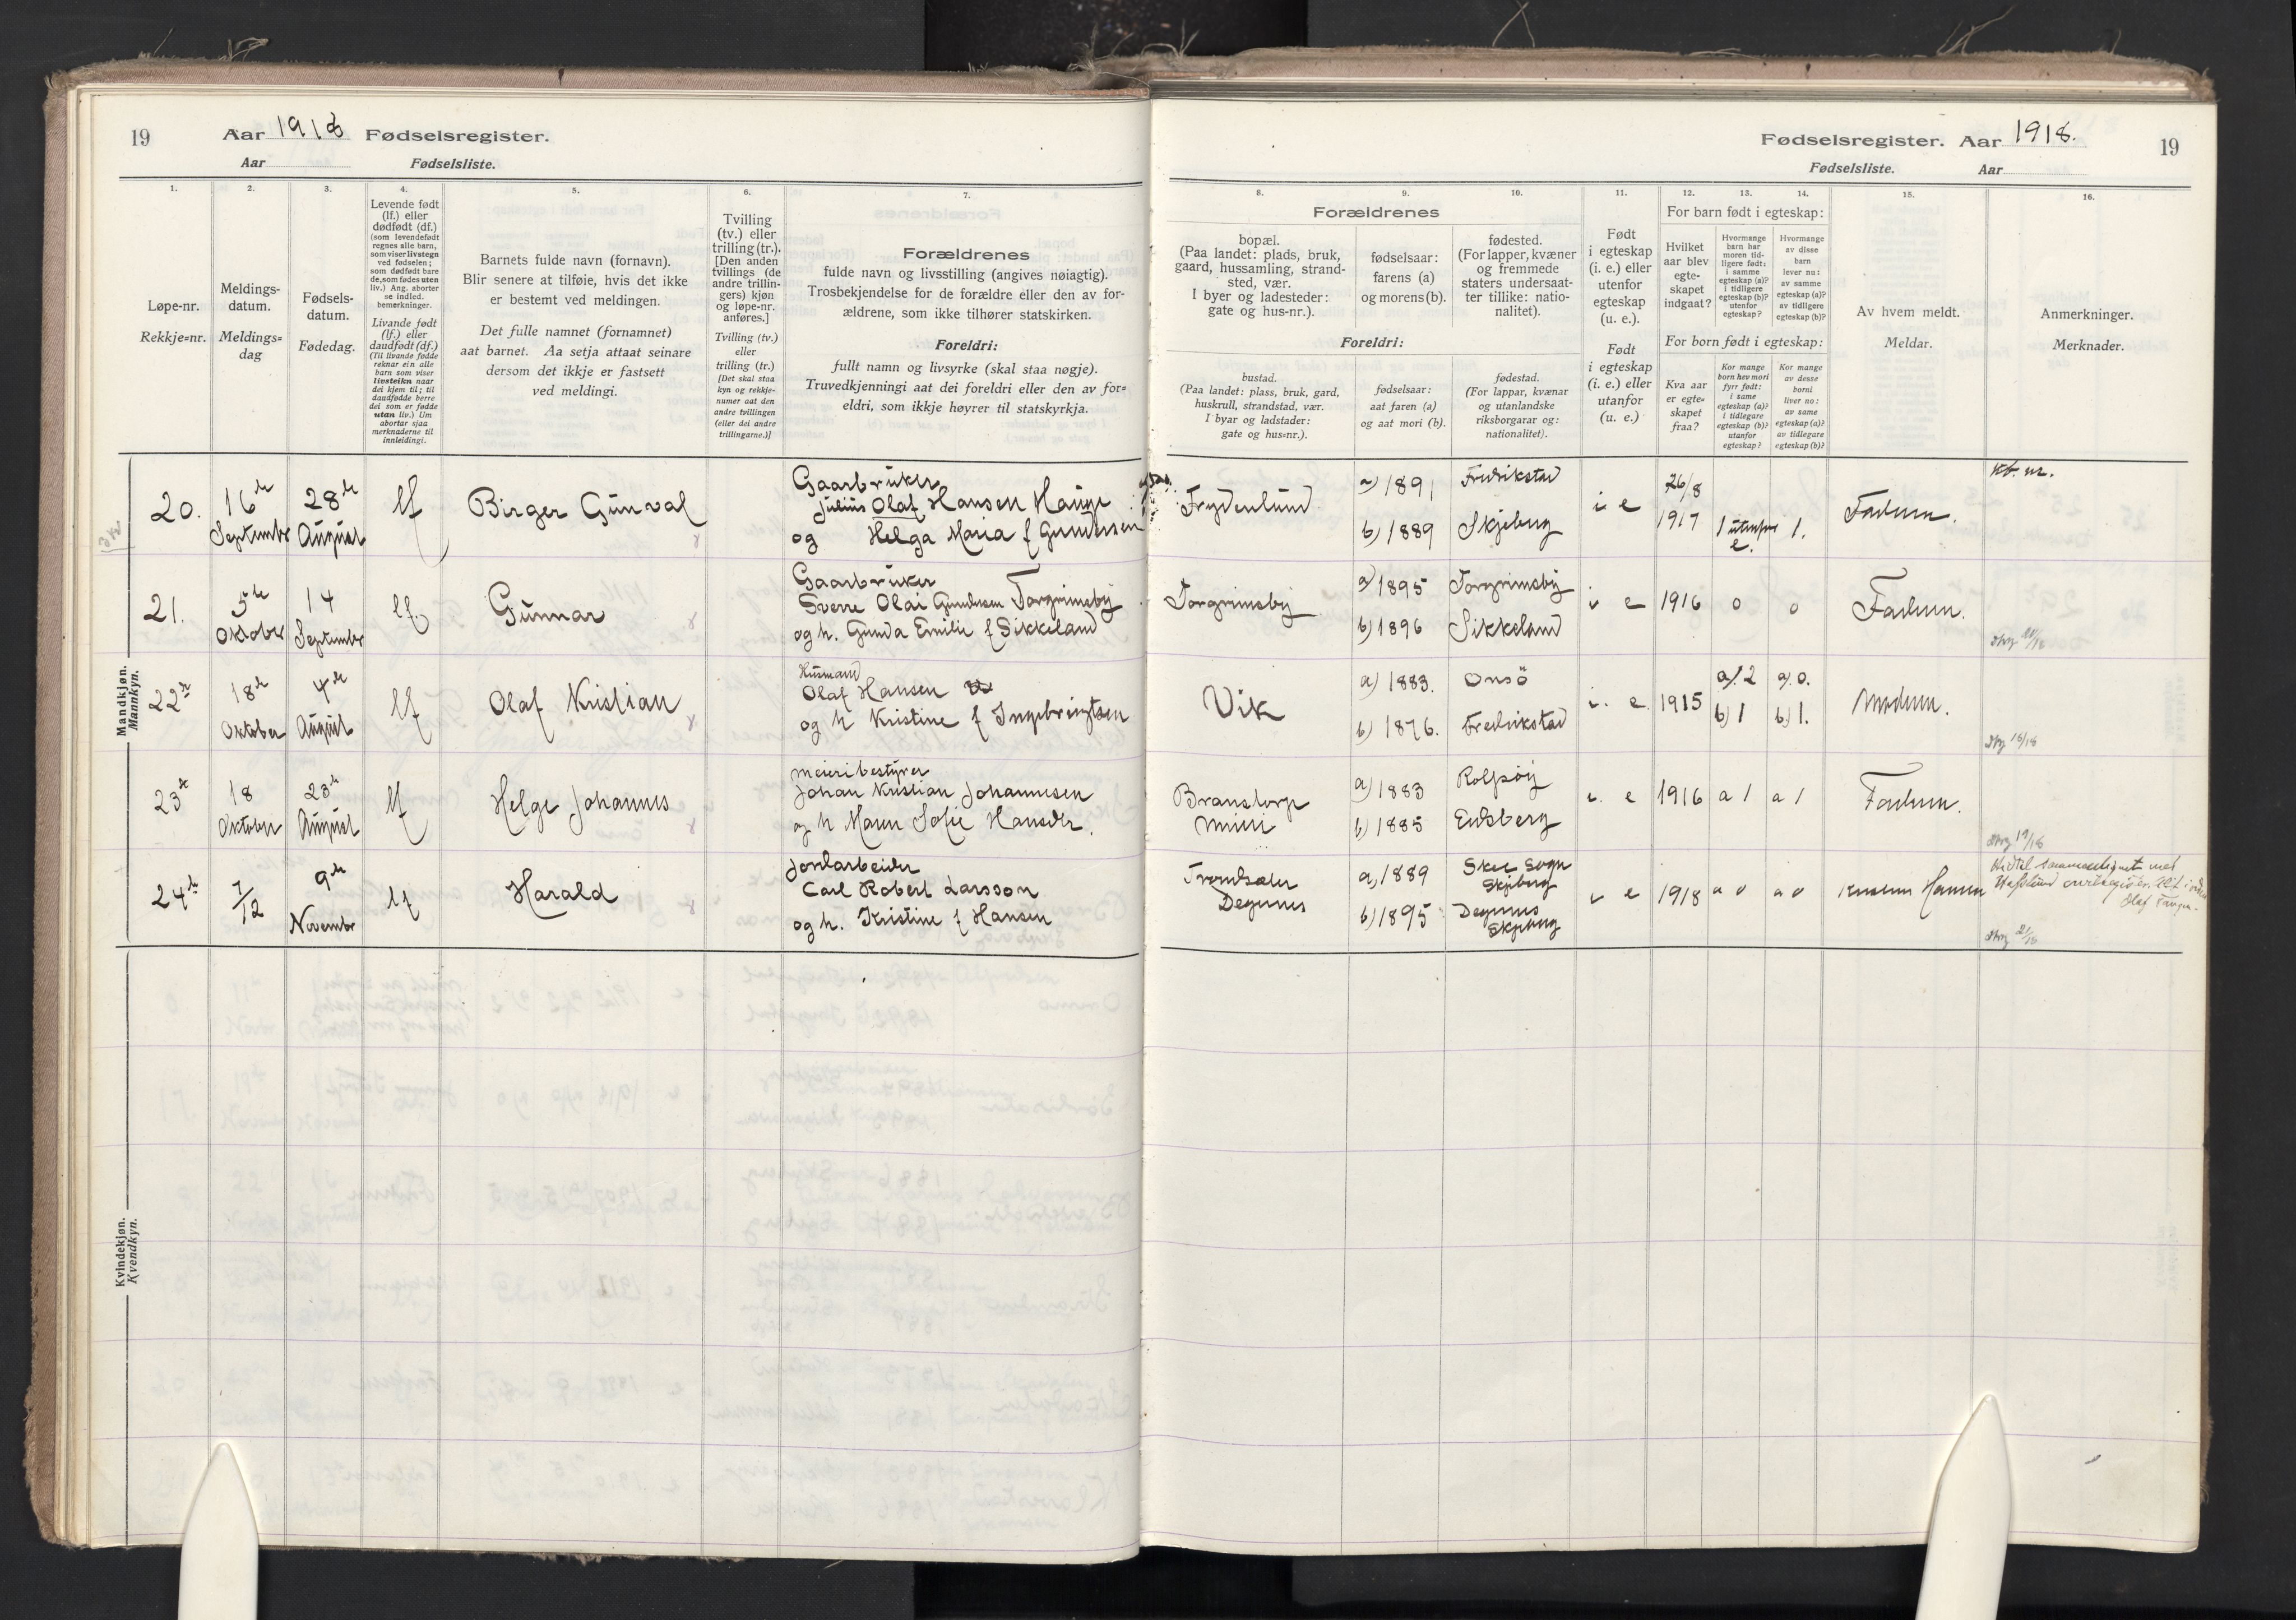 19
Aar 1918 Fødselsregister.
Aar
Fødselsliste.
1.
2.
3.
4.
5.
6.
7.
Løpe-nr.
Rekkje=nr.
Meldings-
datum.
Meldings=
dag
Fødsels-
datum.
Fødedag.
Levende født
(lf.) eller
dødfødt (df.)
(som levendefødt
regnes alle barn,
som viser livstegn
ved fødselen;
som dødfødt bare
de, som fødes uten
liv.) Ang. aborter
se indled.
bemerkninger.
Livande født
(lf.) eller
daudfødt (df.)
(Til livande fødde
reknar ein alle
barn som viser
livsteikn naar
dei kjem til; til
daudfødde berre
dei som er fødde
utan liv.) Um
abortar sjaa
merknaderne til
innleidingi.
Barnets fulde navn (fornavn).
Blir senere at tilføie, hvis det ikke
er bestemt ved meldingen.
Det fulle namnet (fornamnet)
aat barnet. Aa setja attaat seinare
dersom det ikkje er fastsett
ved meldingi.
Tvilling
(tv.) eller
trilling (tr.).
[Den anden
tvillings (de
andre trillin-
gers) kjøn
og løpe-nr.
anføres.]
Tvilling (tv.)
eller
trilling (tr.)
[Det skal staa
kyn og rekkje-
numer aat den
andre tvillingen
(eller dei andre
trillingarne.)]
Forældrenes
fulde navn og livsstilling (angives nøiagtig).
Trosbekjendelse for de forældre eller den av for-
ældrene, som ikke tilhører statskirken.
Foreldri:
fullt namn og livsyrke (skal staa nøgje).
Truvedkjenningi aat dei foreldri eller den av for=
eldri, som ikkje høyrer til statskyrkja.
Mandkjøn.
Mannkyn.
20.
16de
September
28de
August
lf
Birger Gunval
Gaardbruker
Julius Olaf Hansen Hauge
og Helga Maria f Gundersen
21.
5te
Oktober
14
September
lf.
Gunnar
Gaardbruker
Sverre Olai Gundersen Torgrimsby
og h. Gunda Emilie f Sikkeland
22de
18de
Oktober
4de
August
lf
Olaf Kristian
Husmand
Olaf Hansen
og h Kristine f Ingebrigtsen
23de
18
Oktober
23de
August
lf
Helge Johannes
Meieribestyrer
Johan Kristian Johannesen
og h Maren Sofie Hansdtr.
24de
7/12
9de
November
lf
Harald
Jordarbeider
Carl Robert Larsson
og h. Kristine f Hansen
Kvindekjøn.
Kvendkyn.
Fødselsregister. Aar 1918.
19
Fødselsliste.
Aar
8.
9.
10.
11.
12.
13.
14.
15.
16.
Forældrenes
bopæl.
(Paa landet: plads, bruk,
gaard, hussamling, strand-
sted, vær.
I byer og ladesteder:
gate og hus-nr.).
fødselsaar:
farens (a)
og morens (b).
fødested.
(For lapper, kvæner
og fremmede
staters undersaat-
ter tillike: natio-
nalitet).
Foreldri:
bustad.
(Paa landet: plass, bruk, gard,
huskrull, strandstad, vær.
I byar og ladstader:
gate og hus=nr.).
fødselsaar:
aat faren (a)
og aat mori (b).
fødestad.
(For lappar, kvænar
og utanlandske
riksborgarar og:
nationalitet).
Født
i egteskap
(i. e.) eller
utenfor
egteskap
(u. e.).
Født
i egteskap
(i. e.) eller
utanfor
(u. e.)
For barn født i egteskap:
Hvilket
aar blev
egte-
skapet
indgaat?
Hvormange
barn har
moren tid-
ligere født:
i samme
egteskap (a)?
i tidligere
egteskap (b)?
utenfor
egteskap?
Hvormange
av disse
barn
lever nu:
av samme
egteskap (a)?
av tidligere
egteskap (b)?
For born født i egteskap:
Kva aar
er egte=
skapet
fraa?
Kor mange
born hev mori
fyrr født:
i same
egteskap (a)?
i tidlegare
egteskap (b)?
utanfor
egteskap?
Kor mange
av desse
borni
liver no:
av same
egteskap (a)?
av tidlegare
egteskap (b)?
Av hvem meldt.
Meldar.
Anmerkninger.
Merknader.
Frydenlund
a) 1891
b) 1889
Fredrikstad
Skjeberg
i e
26/8
1917
1 utenfor
e.
1.
Faderen.
Torgrimsby
a) 1895
b) 1896
Torgrimsby
Sikkeland
i e
1916
0
0
Faderen.
Vik
a) 1883.
b) 1876.
Onsö
Fredrikstad
i. e.
1915
a). 2
b) 1
a). 0.
b) 1.
Moderen.
Branstorp
Meieri
a) 1883
b) 1885
Rolfsöy
Eidsberg
i. e
1916
a 1
a 1
Faderen.
Trondsæter
Degernes
a) 1889
b) 1895
Skee Sogn
Skjeberg
Degernes
Skjeberg
i e
1918
a 0
a 0
Kristian Hansen